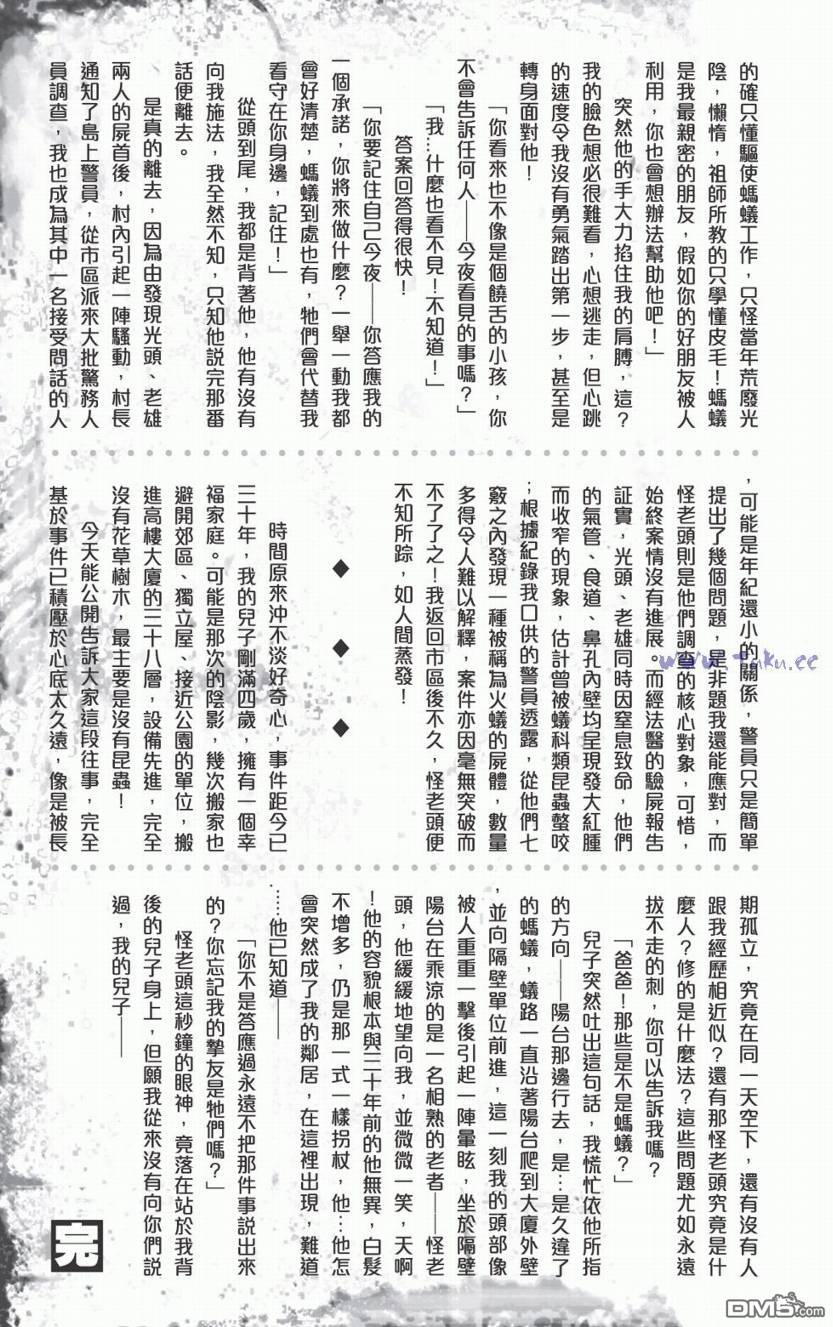 的確只懂驅使螞蟻工作，只怪當年荒廢光
陰，懶惰，祖師所教的只學懂皮毛！螞蟻
是我最親密的朋友，假如你的好朋友被人
利用，你也會想辦法幫助他吧！」
突然他的手大力掐住我的肩膊，這？
我的臉色想必很難看，心想逃走，但心跳
的速度令我沒有勇氣踏出第一步，甚至是
轉身面對他！
「你看來也不像是個饒舌的小孩，你
不會告訴任何人——今夜看見的事嗎？」
「我…什麼也看不見！不知道！」
答案回答得很快！
「你要記住自己今夜——你答應我的
一個承諾，你將來做什麼？一舉一動我都
會好清楚，螞蟻到處也有，牠們會代替我
看守在你身邊，記住！」
從頭到尾，我都是背著他，他有沒有
向我施法，我全然不知，只知他説完那番
話便離去。
是真的離去，因為由發現光頭、老雄
兩人的屍首後，村內引起一陣騷動，村長
通知了島上警員，從市區派來大批警務人
員調查，我也成為其中一名接受問話的人
，可能是年紀還小的關係，警員只是簡單
提出了幾個問題，是非題我還能應對，而
怪老頭則是他們調查的核心對象，可惜，
始終案情沒有進展。而經法醫的驗屍報告
証實，光頭、老雄同時因窒息致命，他們
的氣管、食道、鼻孔內壁均呈現發大紅腫
而收窄的現象，估計曾被蟻科類昆蟲螫咬
；根據紀錄我口供的警員透露，從他們七
竅之內發現一種被稱為火蟻的屍體，數量
多得令人難以解釋，案件亦因毫無突破而
不了了之！我返回市區後不久，怪老頭便
不知所踪，如人間蒸發！
◆ ◆ ◆
時間原來沖不淡好奇心，事件距今已
三十年，我的兒子剛滿四歲，擁有一個幸
福家庭。可能是那次的陰影，幾次搬家也
避開郊區、獨立屋、接近公園的單位，搬
進高樓大廈的三十八層，設備先進，完全
沒有花草樹木，最主要是沒有昆蟲！
今天能公開告訴大家這段往事，完全
基於事件已積壓於心底太久遠，像是被長
期孤立，究竟在同一天空下，還有沒有人
跟我經歷相近似？還有那怪老頭究竟是什
麼人？修的是什麼法？這些問題尤如永遠
拔不走的刺，你可以告訴我嗎？
「爸爸！那些是不是螞蟻？」
兒子突然吐出這句話，我慌忙依他所指
的方向——陽台那邊行去，是…是久違了
的螞蟻，蟻路一直沿著陽台爬到大廈外壁
，並向隔壁單位前進，這一刻我的頭部像
被人重重一擊後引起一陣暈眩，坐於隔壁
陽台在乘涼的是一名相熟的老者——怪老
頭，他緩緩地望向我，並微微一笑，天啊
！他的容貌根本與三十年前的他無異，白髮
不增多，仍是那一式一樣拐杖，他…他怎
會突然成了我的鄰居，在這裡出現，難道
……他已知道——
「你不是答應過永遠不把那件事説出來
的？你忘記我的摯友是牠們嗎？」
怪老頭這秒鐘的眼神，竟落在站於我背
後的兒子身上，但願我從來沒有向你們説
過，我的兒子——
完
www.Tuku.cc
DM5.com